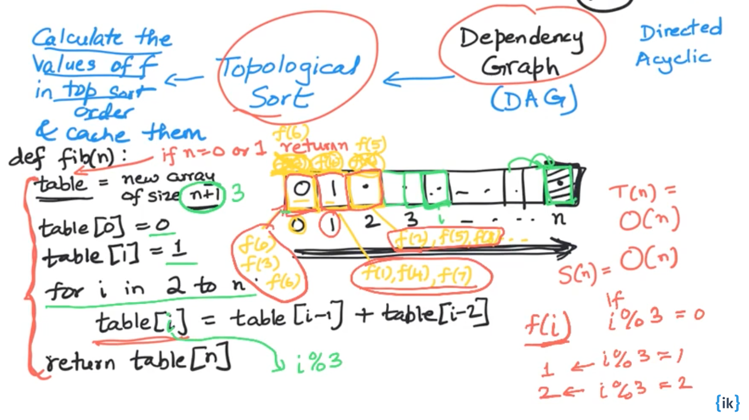 Calculate the
values of f
in top sort
order
& cache them
Topological
Sort
Dependency
Graph
(DAG)
Directed
Acyclic
def fib(n):
if n=0 or 1 return
f(6)
f(5)
table = new array
of size n+1 3
table[0] = 0
table[i] = 1
for i in 2 to n
table[i] = table[i-1] + table[i-2]
return table[n]
i%3
0 1
0 1 2 3 i n
f(0)
f(3)
f(6)
f(2), f(5), f(8)
f(1), f(4), f(7)
T(n) =
O(n)
S(n) = O(n)
f(i)
If
i%3 = 0
1 ← i%3 = 1
2 ← i%3 = 2
{ik}